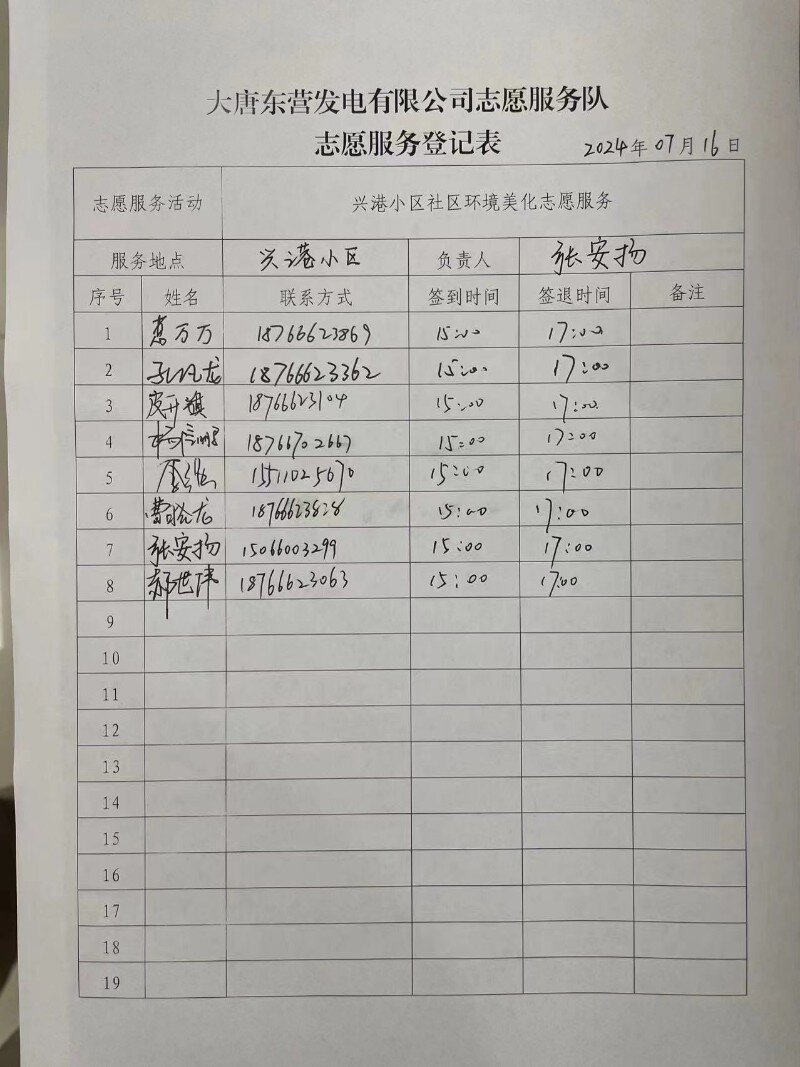 大唐东营发电有限公司志愿服务队
志愿服务登记表
2024年07月16日
志愿服务活动 兴港小区社区环境美化志愿服务
服务地点 兴港小区 负责人 张安扬
序号 姓名 联系方式 签到时间 签退时间 备注
1 万万 18766623869 15:00 17:00
2 孔凡龙 18766623362 15:00 17:00
3 18766623104 15:00 17:00
4 18766702667 15:00 17:00
5 15511025670 15:00 17:00
6 曹晓龙 18766623828 15:00 17:00
7 张安扬 15066003299 15:00 17:00
8 郝世伟 18766623063 15:00 17:00
9
10
11
12
13
14
15
16
17
18
19